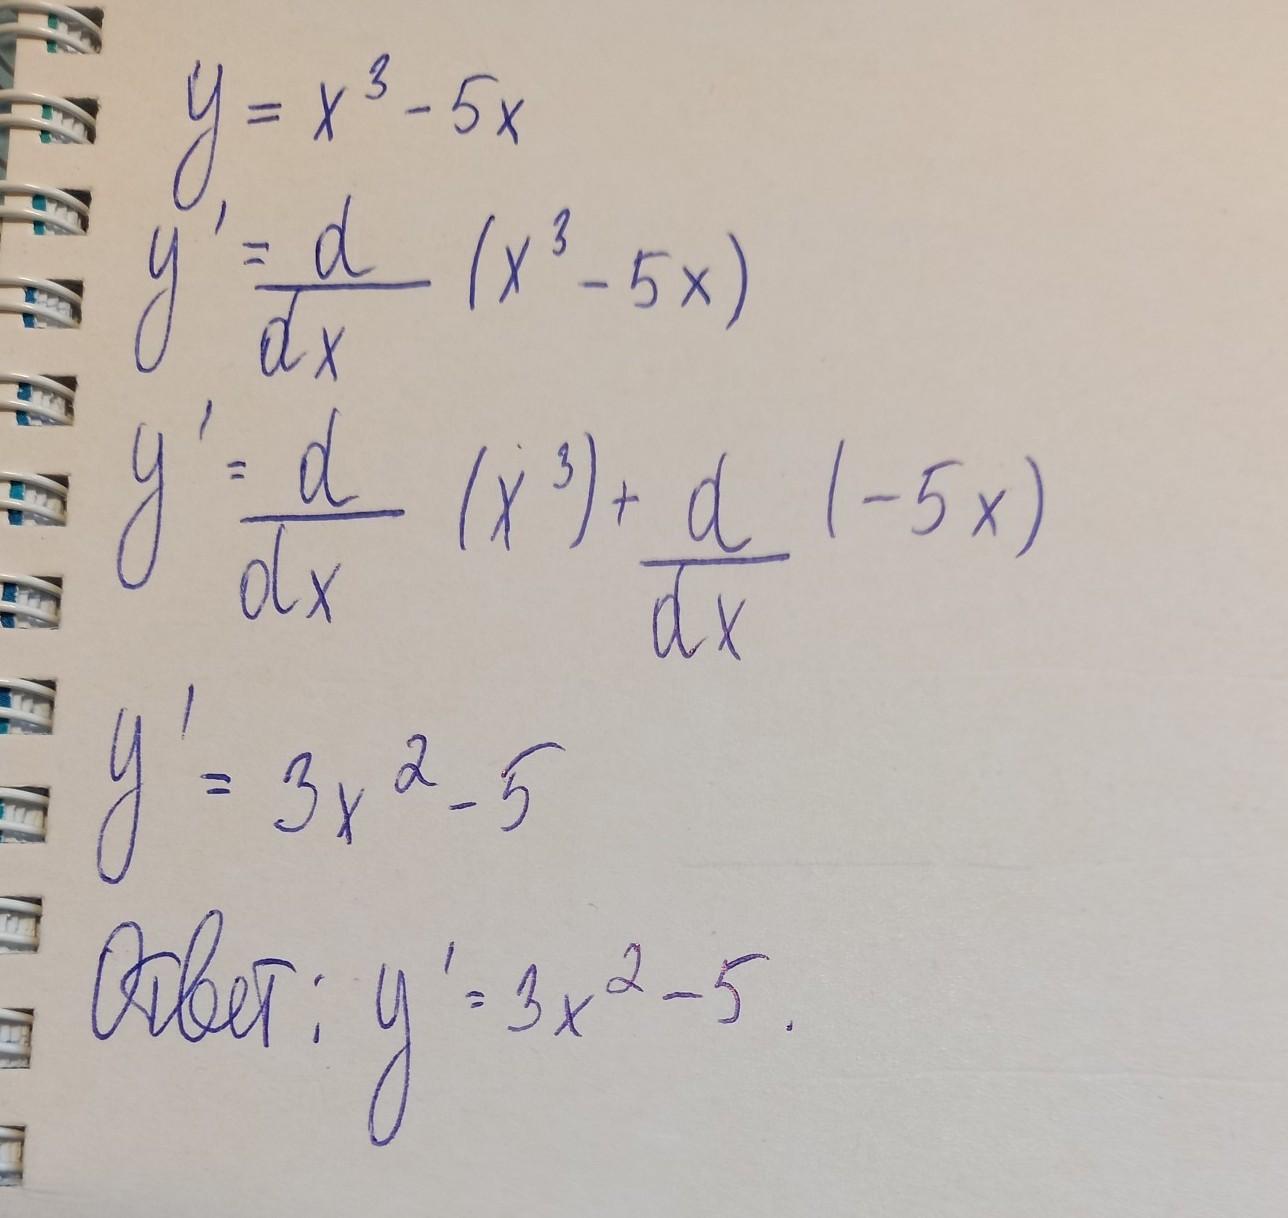 y = x³ - 5x
y' = d/dx (x³ - 5x)
y' = d/dx (x³) + d/dx (-5x)
y' = 3x² - 5
Ответ: y' = 3x² - 5.